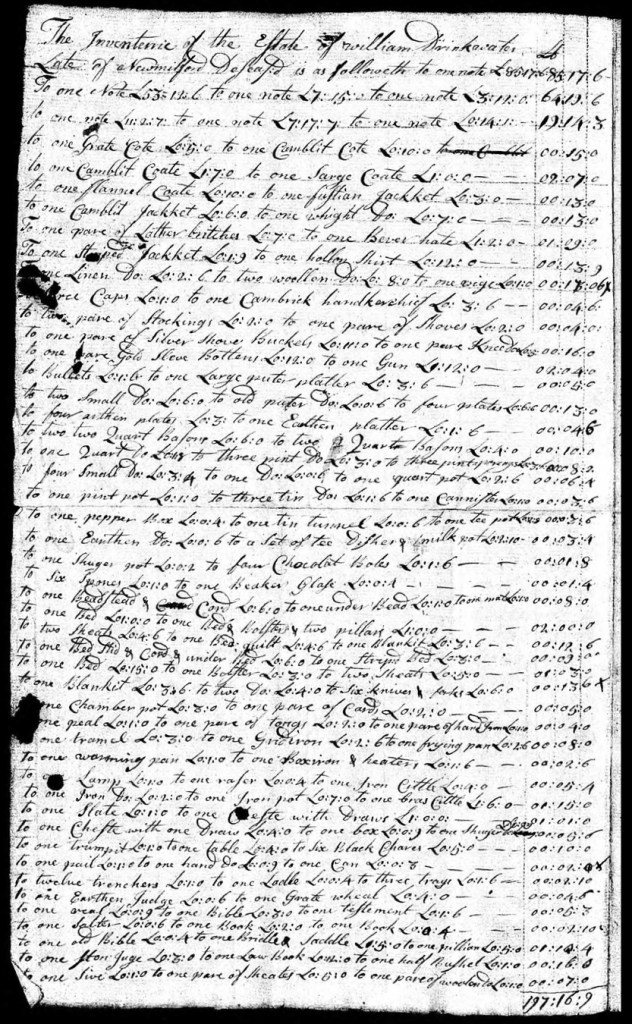 The Inventerie of the Estate of william Drinkwater Lb
Late of Newmilford Deseasd is as followeth to one note L85:17:6 85:17:6
To one Note L53:12:6 to one note L7:15:0 to one note L3:12:0 64:19:6
to one note L11:2:7 to one note L7:17:7 to one note L0:14:1 19:14:3
to one Grate Cote L0:5:0 to one Camblit Cote L0:10:0 00:15:0
to one Camblit Coate L1:7:0 to one Sarge Coate L1:0:0 02:07:0
to one flannel Coate L0:10:0 to one fustian Jackket L0:3:0 00:13:0
to one Camblit Jackket L0:6:0 to one whight Do: L0:7:0 00:13:0
To one pare of Lather britches L0:7:0 to one Bever hate L1:2:0 01:09:0
To one Jackket L0:1:9 to one hollon Shirt L0:12:0 00:13:9
one Linen Do: L0:2:6 to two woollen Do: L0:8:0 to one
Caps L0:1:0 to one Cambrick handkerchief L0:3:6 00:04:6
to two pare of Stockings L0:2:0 to one pare of Shoues L0:2:0 00:04:0
to one pare of Silver Shoue Buckels L0:11:0 to one pare Knee 00:16:0
to one pare Gold Sleve Bottens L0:12:0 to one Gun L1:12:0 02:04:0
to Bullets L0:1:6 to one Large puter platter L0:3:6 00:05:0
to two Small Do: L0:6:0 to old puter Do: L0:0:6 to four plates L0:6:6 00:13:0
to four arthen plates L0:3: to one Earthen platter L0:1:6 00:04:6
to two two Quart Basons L0:6:0 to two Quarte Basons L0:4:0 00:10:0
to one Quart Do to three pint Do L0:3:0 to three pint 00:8:2
to four Small Do: L0:3:4 to one Do: L0:0:6 to one quart pot L0:2:6 00:06:4
to one pint pot L0:1:0 to three tin Do: L0:1:6 to one Cannister L0:1:0 00:03:6
to one pepper Box L0:0:4 to one tin tunnel L0:0:6 to one tee pot 00:3:6
to one Earthen Do: L0:0:6 to a Set of tee Dishes & milk pot L0:2:10 00:03:4
to one Shuger pot L0:0:2 to four Chocolit Boles L0:1:6 00:01:8
to Six Spones L0:1:0 to one Beaker Glase L0:0:4 00:01:4
to one Beadstead & Cord L0:6:0 to one under Bead L0:1:0 to one mat L0:1:0 00:08:0
to one Bed L0:0:0 to one Bed & Bolster & two pillars L1:0:0 02:00:0
to two Sheats L0:4:6 to one Bed quilt L0:4:6 to one Blankit L0:3:6 00:12:6
to one Bed Sted & Cord & under Bed L0:6:0 to one Striped Bed L0:3:0 00:09:0
to one Bed L0:15:0 to one Bolster L0:3:0 to two Sheats L0:5:0 01:03:0
to one Blanket L0:3:6 to two Do: L0:4:0 to Six Knives & forks L0:6:0 00:13:6 x
one Chamber pot L0:3:0 to one pare of Cards L0:2:0 00:05:0
one peal L0:1:0 to one pare of tongs L0:2:0 to one pare of hand Irons L0:1:0 00:04:0
one tramel L0:3:0 to one Gridiron L0:2:6 to one frying pan L0:2:6 00:08:0
to one warming pan L0:1:0 to one Boxiron & heaters L0:1:6 00:02:6
to Lamp L0:1:0 to one rasor L0:0:4 to one Iron Cittle L0:4:0 00:05:4
to one Iron Do: L0:2:0 to one Iron pot L0:7:0 to one bras Cittle L0:6:0 00:15:0
to one Slate L0:1:0 to one Cheste with Draws L1:0:0 01:01:0
to one Cheste with one Draw L0:4:0 to one box L0:0:9 to one 00:05:6
to one L0:1:0 to one table L0:4:0 to Six Black Chares L0:5:0 00:10:0
to one pail L0:1:0 to one hand Do L0:0:9 to one Can L0:0:8
to twelve trenchers L0:1:0 to one Ladle L0:0:4 to three trays L0:1:6 00:02:10
to one Earthen Judge L0:0:6 to one Grate wheal L0:4:0 00:04:6
to one L0:0:9 to one Bible L0:3:0 to one testement L0:1:6 00:05:3
to one Salter L0:0:6 to one Book L0:2:0 to one Book L0:0:4 00:02:10
to one old Bible L0:0:4 to one Bridle & Saddle L0:15:0 to one pillion L0:5:0
to one ston Juge L0:3:0 to one Law Book L0:12:0 to one half Bushel L0:1:0 00:16:0
to one Sive L0:1:0 to one pare of Sheates L0:5:0 to one pare of L0:1:0 00:07:0
197:16:9